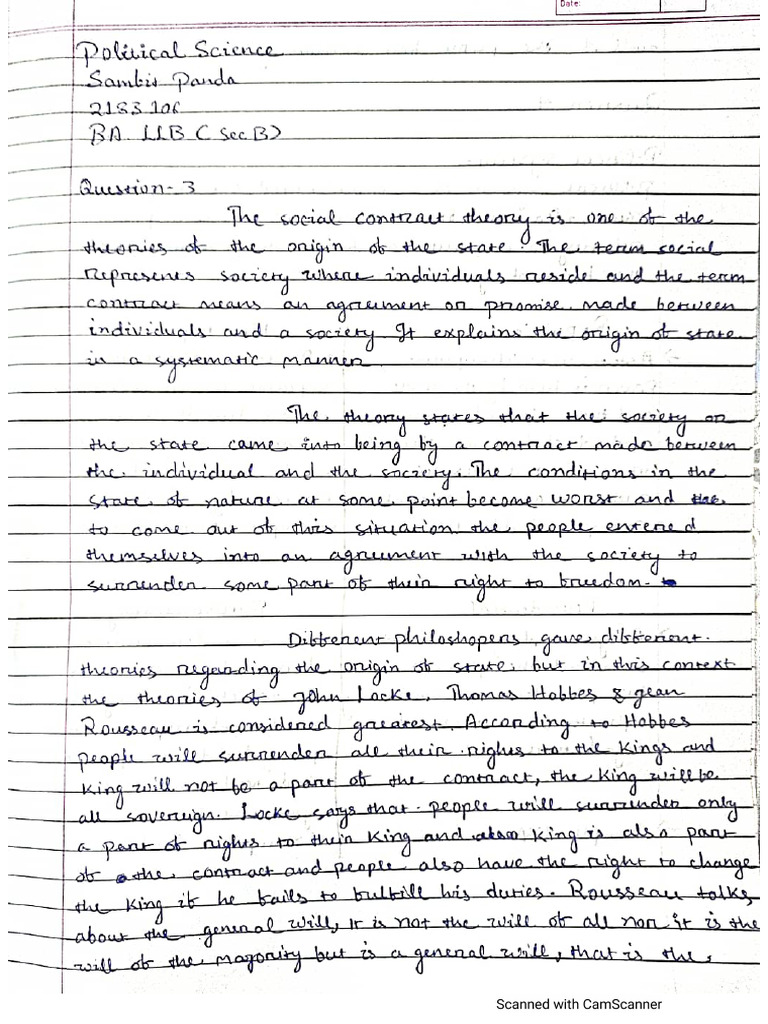 Date:
Political Science
Sambit Panda
2183106
BA LLB ( Sec B)
Question- 3
The social contract theory is one of the
theories of the origin of the state. The term social
represents society where individuals reside and the term
contract means an agreement or promise made between
individuals and a society It explains the origin of state
in a systematic manner
The theory states that the society or
the state came into being by a contract made between
the individual and the society. The conditions in the
state of nature at some point become worst and the
to come out of this situation the people entered
themselves into an agreement with the society to
surrender some part of their right to freedom.
Different philoshopers gave different
theories regarding the origin of state but in this context
the theories of John Locke, Thomas Hobbes & Jean
Rousseau is considered greatest. According to Hobbes
people will surrender all their rights to the Kings and
King will not be a part of the contract, the King will be
all sovereign. Locke says that people will surrender only
a part of rights to their King and also King is also part
of the contract and people also have the right to change
the King if he fails to fulfill his duties. Rousseau talks
about the general will, it is not the will of all nor it is the
will of the majority but is a general will, that is the
Scanned with CamScanner